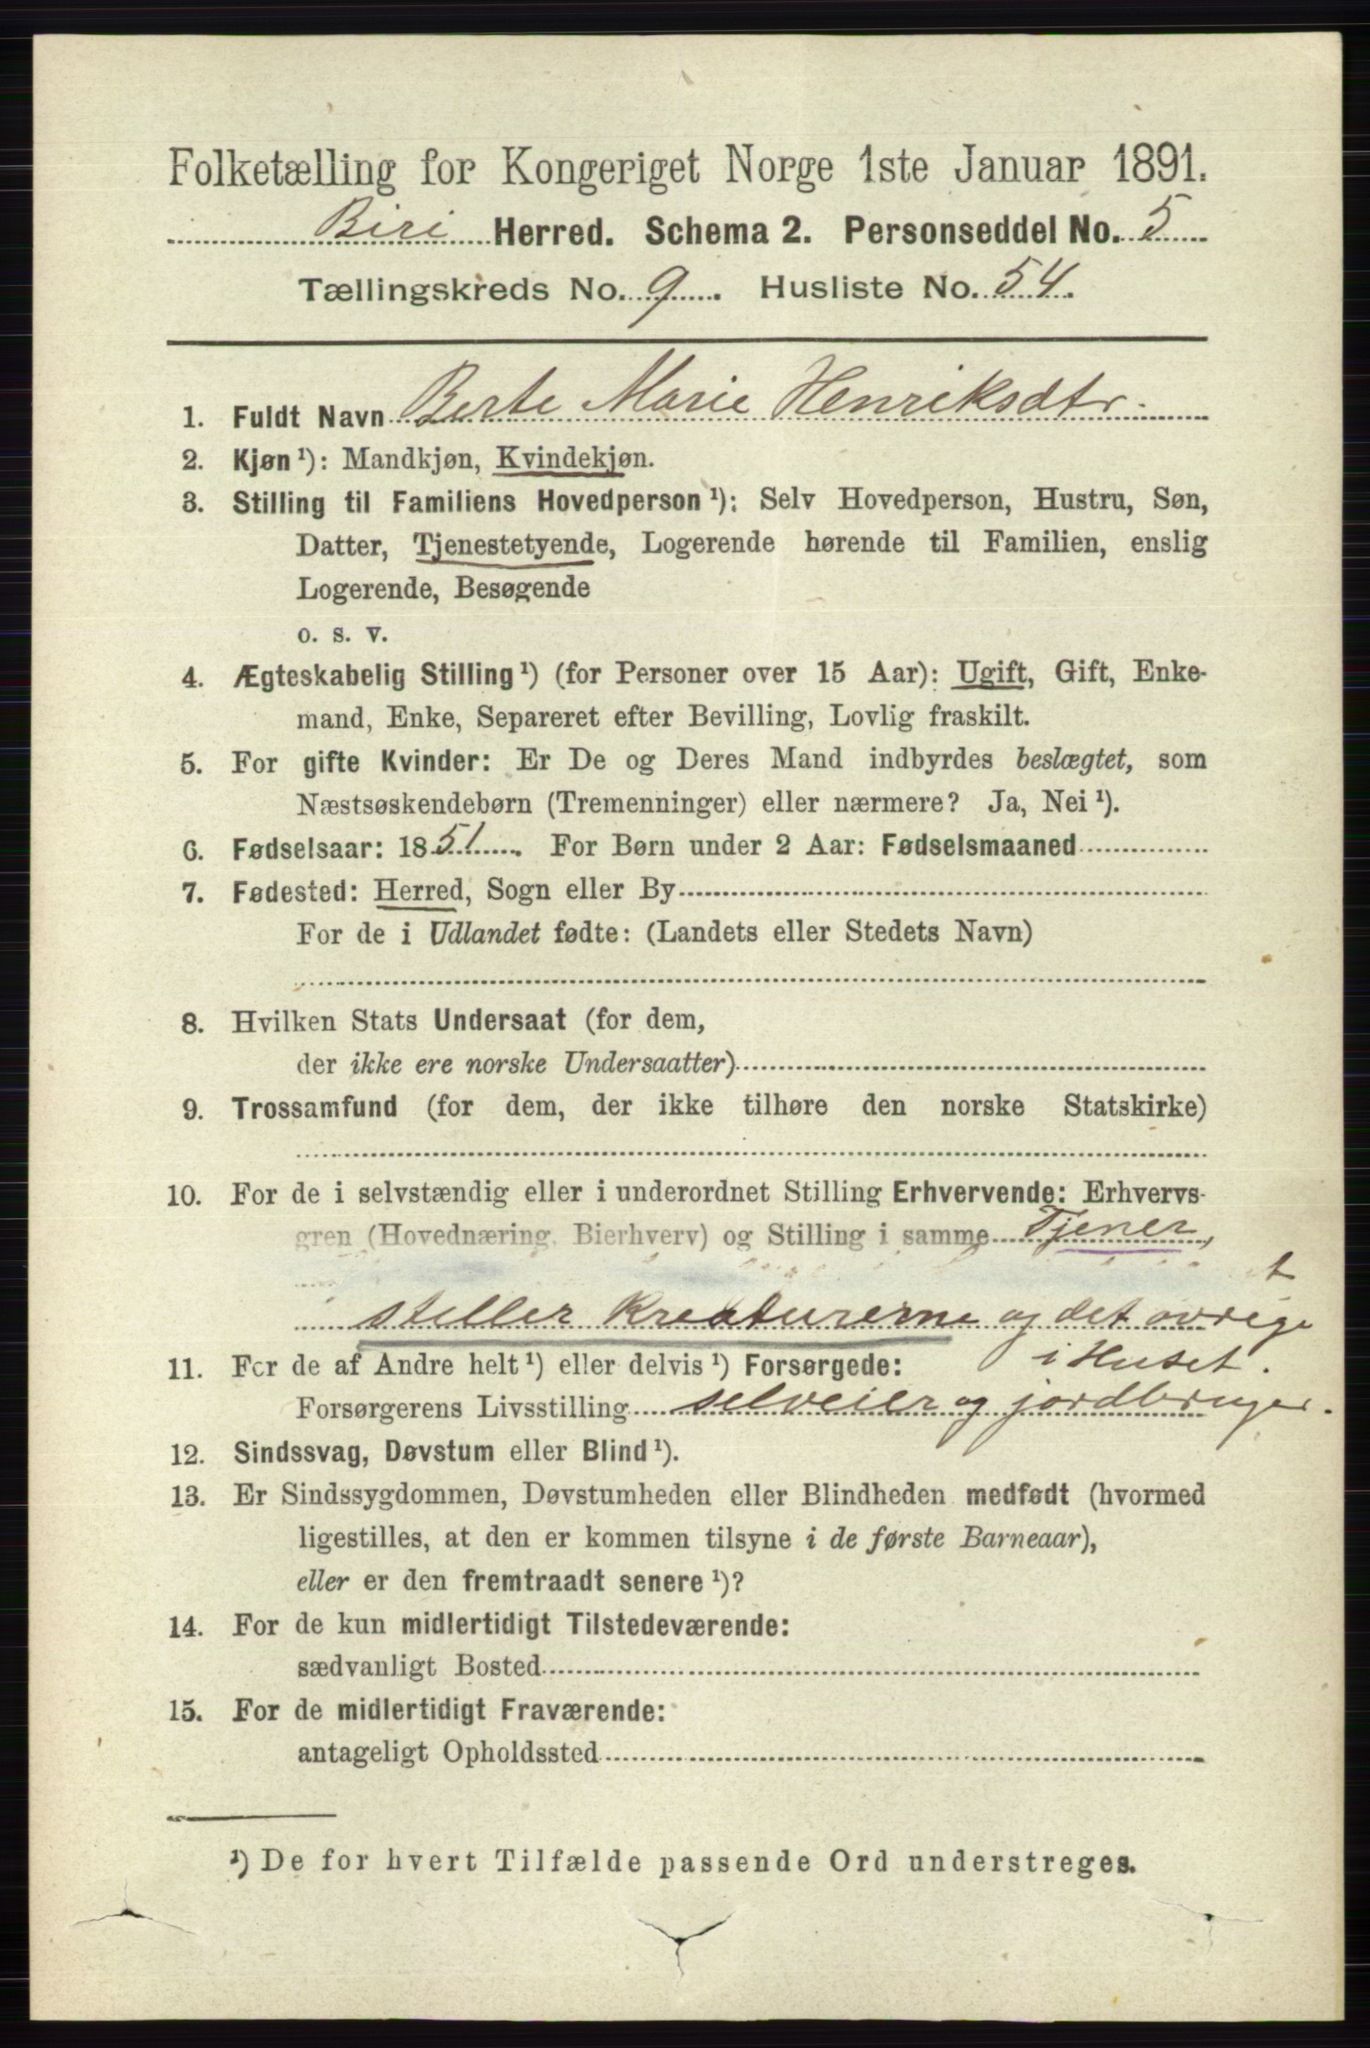 Folketælling for Kongeriget Norge 1ste Januar 1891.
Biri Herred. Schema 2. Personseddel No. 5
Tællingskreds No. 9. Husliste No. 54.
1. Fuldt Navn Berte Marie Henriksdtr.
2. Kjøn ¹): Mandkjøn, Kvindekjøn.
3. Stilling til Familiens Hovedperson ¹): Selv Hovedperson, Hustru, Søn,
Datter, Tjenestetyende, Logerende hørende til Familien, enslig
Logerende, Besøgende
o. s. v.
4. Ægteskabelig Stilling ¹) (for Personer over 15 Aar): Ugift, Gift, Enke-
mand, Enke, Separeret efter Bevilling, Lovlig fraskilt.
5. For gifte Kvinder: Er De og Deres Mand indbyrdes beslægtet, som
Næstsøskendebørn (Tremenninger) eller nærmere? Ja, Nei ¹).
6. Fødselsaar: 1851. For Børn under 2 Aar: Fødselsmaaned
7. Fødested: Herred, Sogn eller By
For de i Udlandet fødte: (Landets eller Stedets Navn)
8. Hvilken Stats Undersaat (for dem,
der ikke ere norske Undersaatter)
9. Trossamfund (for dem, der ikke tilhøre den norske Statskirke)
10. For de i selvstændig eller i underordnet Stilling Erhvervende: Erhvervs-
gren (Hovednæring, Bierhverv) og Stilling i samme Tjener,
t
steller Kreaturerne og det øvrige
i Huset.
11. For de af Andre helt ¹) eller delvis ¹) Forsørgede:
Forsørgerens Livsstilling selveier og jordbruger.
12. Sindssvag, Døvstum eller Blind ¹).
13. Er Sindssygdommen, Døvstumheden eller Blindheden medfødt (hvormed
ligestilles, at den er kommen tilsyne i de første Barneaar),
eller er den fremtraadt senere ¹)?
14. For de kun midlertidigt Tilstedeværende:
sædvanligt Bosted
15. For de midlertidigt Fraværende:
antageligt Opholdssted
¹) De for hvert Tilfælde passende Ord understreges.